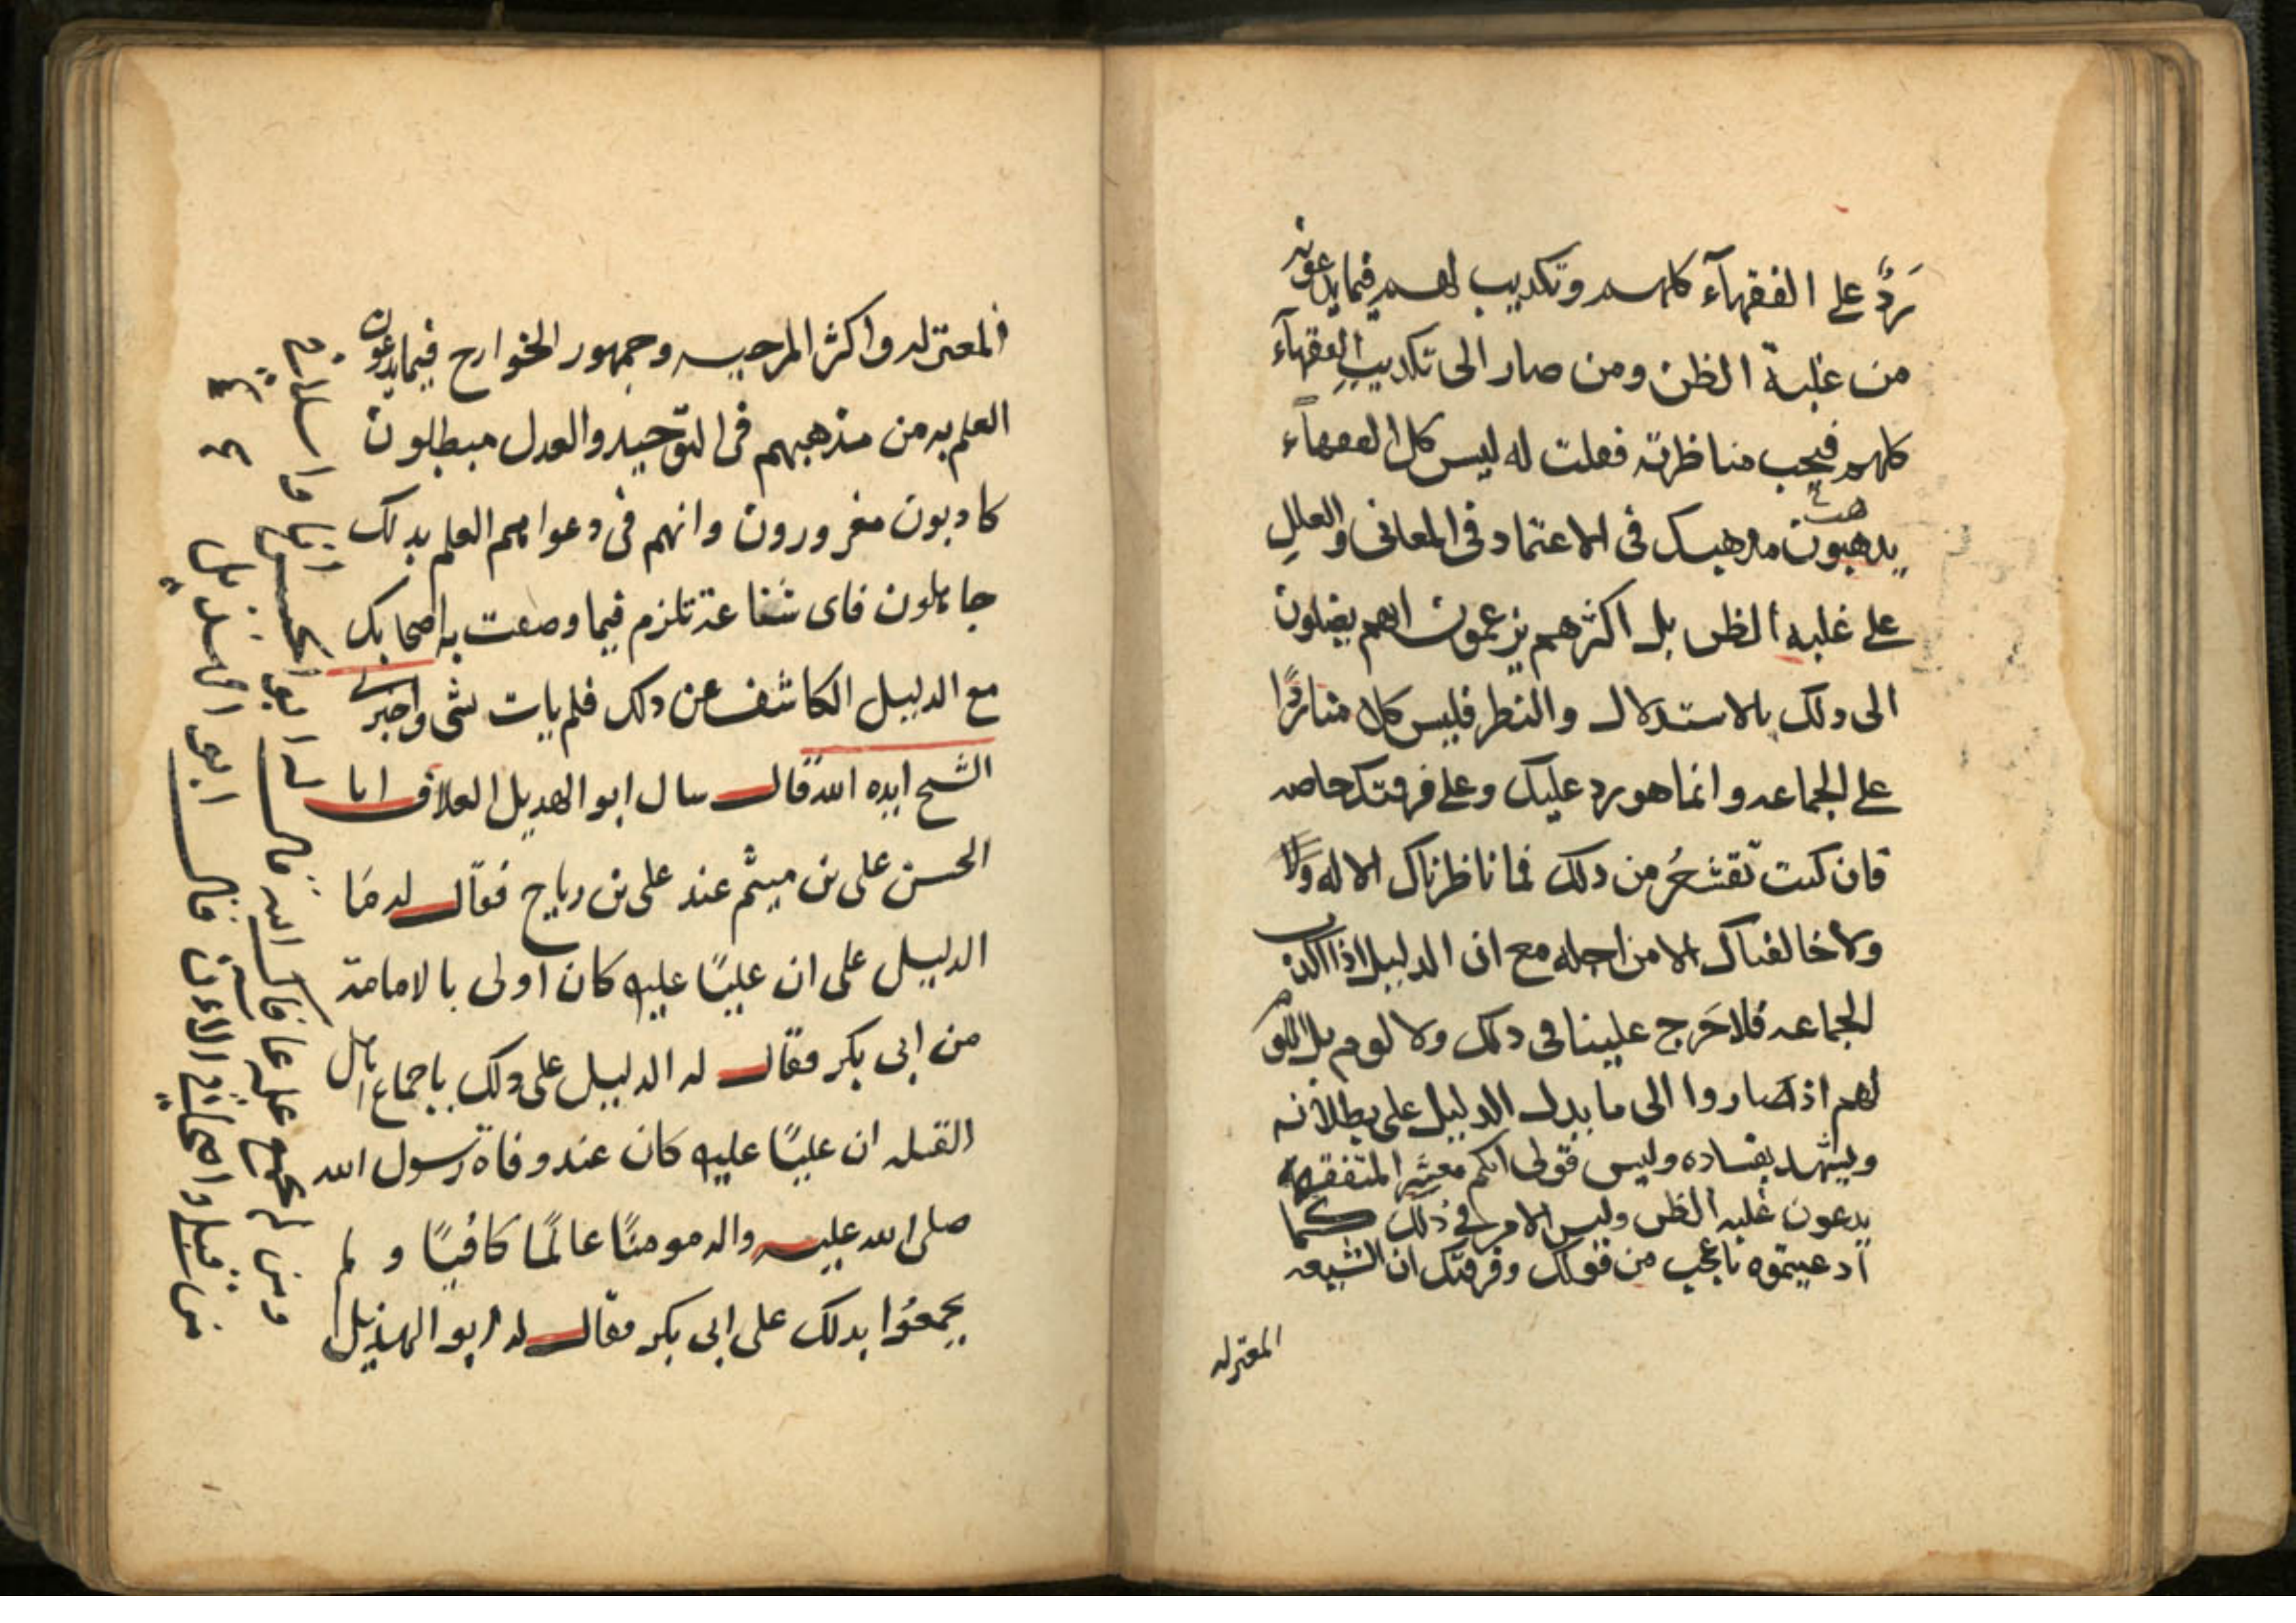 رَدٌّ على الفقهآء كلهم وتكديب لهم فيما يدعونه
من غلبة الظن ومن صار الى تكديب الفقهآء
كلهم فيجب مناظرته فعلت له ليس كل الفقهاء
يدهبون مدهبك فى الاعتماد فى المعانى والعلل
على غلبه الظن بل اكثرهم يزعمون انهم يصلون
الى دلك بالاستدلال والنظر فليس كلامنا ردًّا
على الجماعه وانما هو رد عليك وعلى فرقتك خاصه
فان كنت تقشعرُ من دلك فما ناظرناك الا له ولا
ولا خالفناك الا من اجله مع ان الدليل اذا اكدب
الجماعه فلا حَرج علينا فى دلك ولا لوم بل اللوم
لهم اذ صاروا الى ما يدل الدليل على بطلانه
ويشهد بفساده وليس قولى انكم معشر المتفقهه
يدعون غلبه الظن وليس الامر فى ذلك كما
ادعيتموه باعجب من قولك وفرقتك ان الشيعه
المعتزله
المعتزله واكثر المرجيه وجمهور الخوارج فيما يدعون
العلم به من مذهبهم فى التوّحيد والعدل مبطلون
كادبون مغرورون وانهم فى دعواهم العلم بدلك
جاهلون فاى شناعة تلزم فيما وصفت به اصحابك
مع الدليل الكاشف عن دلك فلم يات بشى واخبرنى
الشيخ ايده الله قال سال ابو الهديل العلاف ابا
الحسن على بن ميثم عند على بن رياح فقال له مَا
الدليل على ان عليًا عليه كان اولى بالامامة
من ابى بكر فقال له الدليل على دلك باجماع اهل
القبله ان عليًا عليه كان عند وفاة رسول الله
صلى الله عليه واله مومنًا عالمًا كافيًا و لم
يجمعُوا بدلك على ابى بكر فقال له ابو الهذيل
ومن لم يجمع عليه عافاك الله قال له ابو الحسن انا واسلافى
من قبل واصحابى الآن قال ابو الهذيل